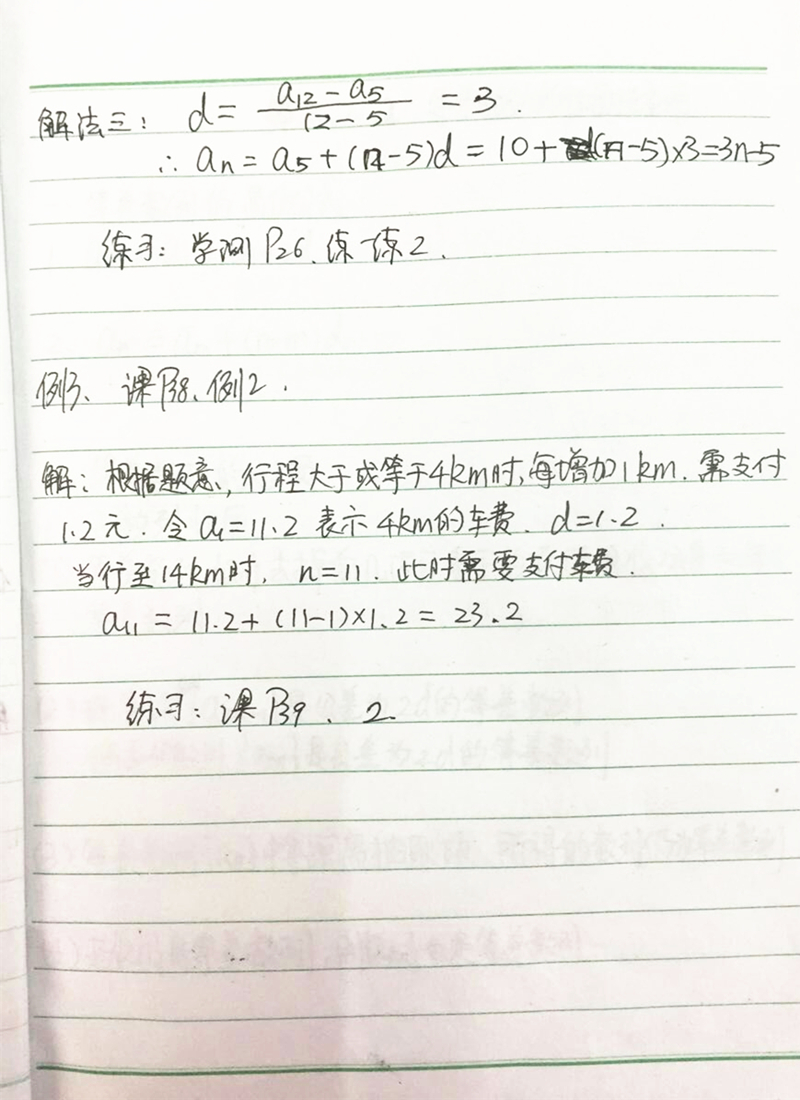 解法三: d = (a₁₂ - a₅)/(12 - 5) = 3.
∴ aₙ = a₅ + (n-5)d = 10 + (n-5)×3 = 3n-5
练习: 学测 P26. 练一练2.
例3、课P38、例2.
解: 根据题意, 行程大于或等于4km时, 每增加1km. 需支付
1.2元. 令 a₁=11.2 表示 4km的车费. d=1.2.
当行至14km时, n=11. 此时需要支付车费.
a₁₁ = 11.2+(11-1)×1.2 = 23.2
练习: 课P39. 2.